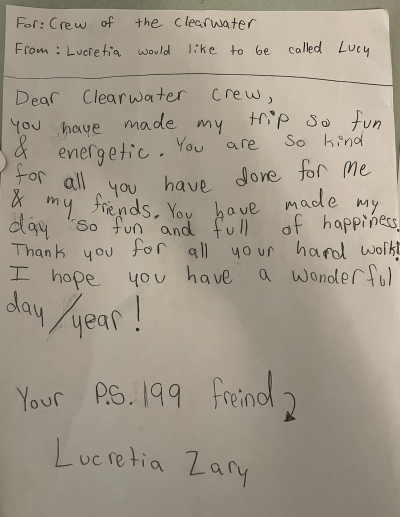 For: Crew of the Clearwater
From: Lucretia would like to be called Lucy
Dear Clearwater Crew,
you have made my trip so fun
& energetic. You are so kind
for all you have done for me
& my friends. You have made my
day so fun and full of happiness.
Thank you for all your hard work!
I hope you have a wonderful
day/year!
Your P.S. 199 freind
Lucretia Zary